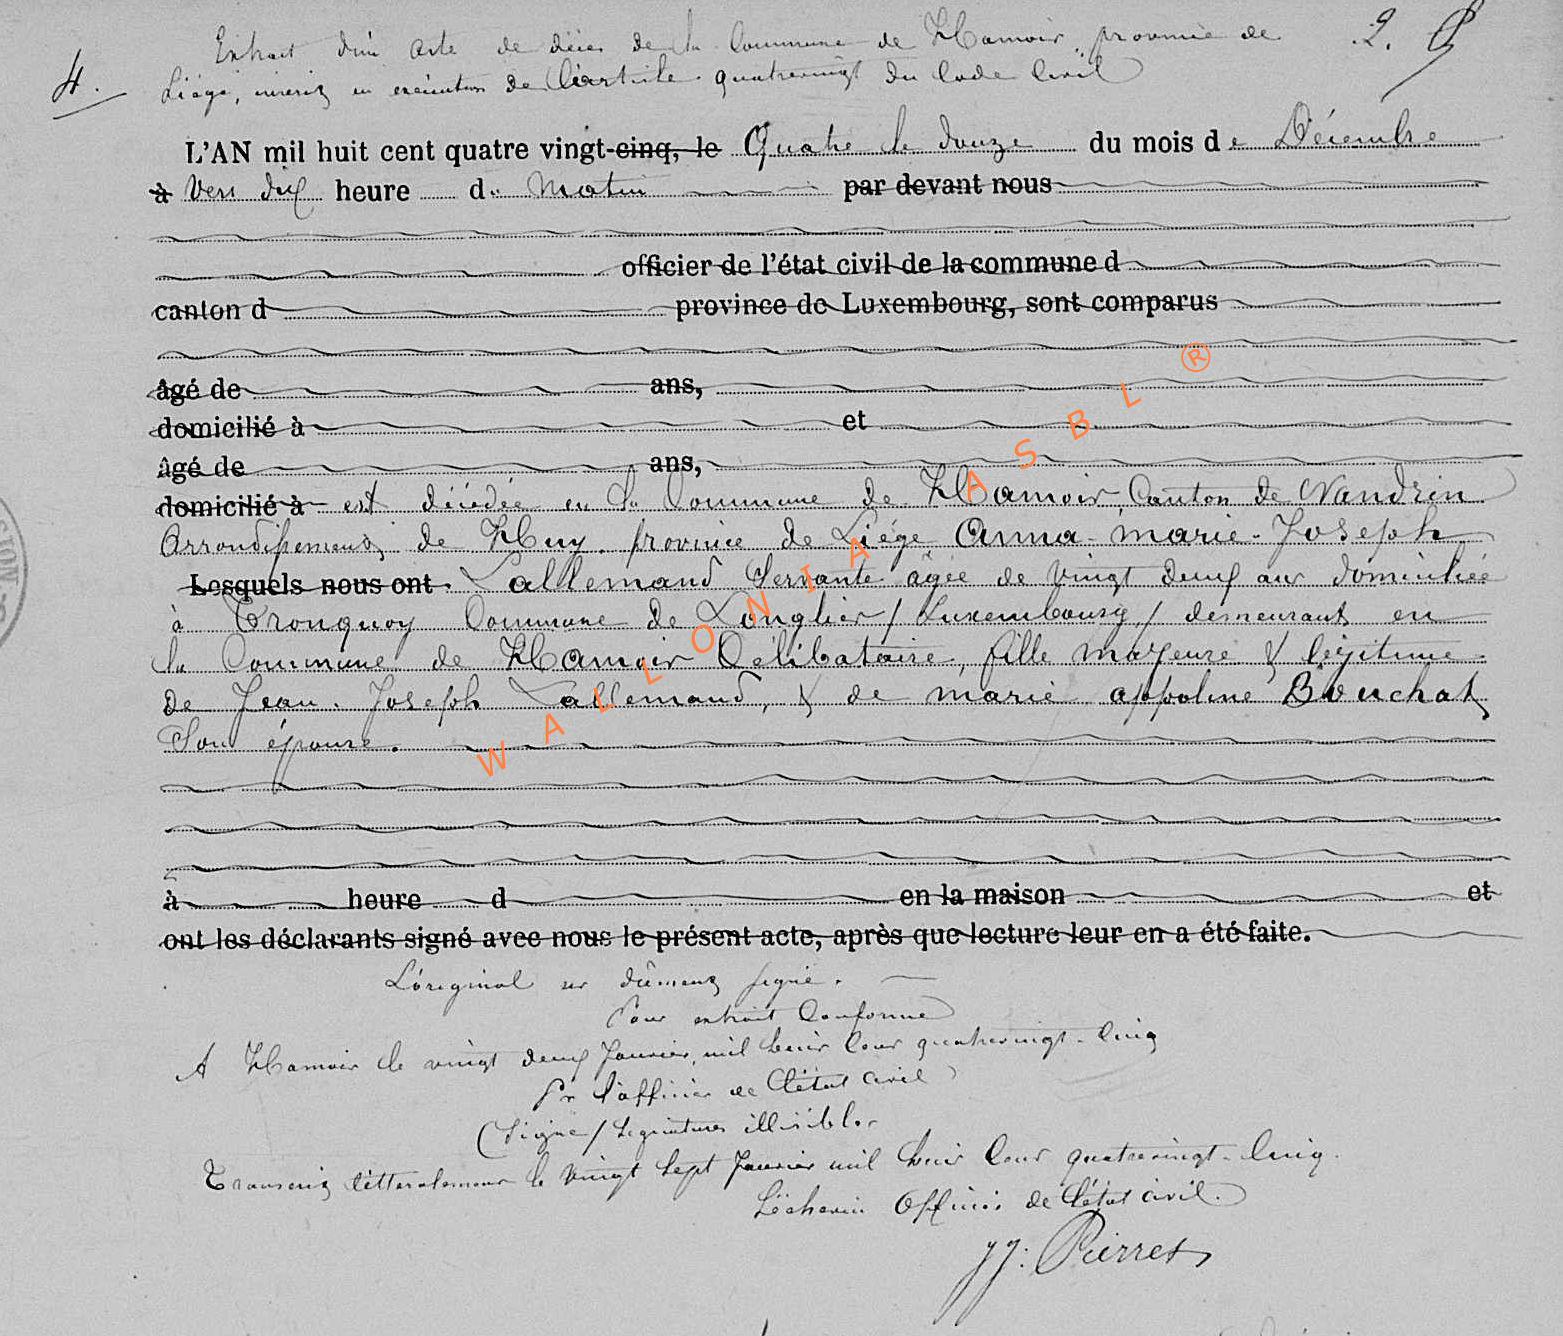 Extrait d'un acte de décès de la Commune de Hamoir, province de 2.
4. Liége, inscrit en exécution de l'article quatrevingt du Code Civil
L'AN mil huit cent quatre vingt-cinq, le Quatre le douze du mois de Décembre
à Vers dix heure du Matin par devant nous
officier de l'état civil de la commune d
canton d province de Luxembourg, sont comparus
âgé de ans,
domicilié à et
âgé de ans,
domicilié à est décédée en la Commune de Hamoir, Canton de Nandrin
Arrondissement de Huy, province de Liége Anna-marie-Joseph
Lesquels nous ont Lallemand Servante âgée de vingt deux ans domiciliée
à Tronquoy Commune de Longlier / Luxembourg / demeurant en
la Commune de Hamoir Célibataire, fille majeure & légitime
de Jean Joseph Lallemand, & de marie appoline Bouchat
Son épouse.
à heure d en la maison et
ont les déclarants signé avec nous le présent acte, après que lecture leur en a été faite.
L'original est dûment signé.
Pour extrait Conforme
A Hamoir le vingt deux Janvier mil huit Cent quatrevingt-Cinq
Pr l'officier de l'état Civil
(Signé/ Signature illisible
Transcrit littéralement le vingt Sept Janvier mil huit Cent quatrevingt-Cinq.
L'échevin Officier de l'état civil.
JJ. Pierret
WALLONIA ASBL ®